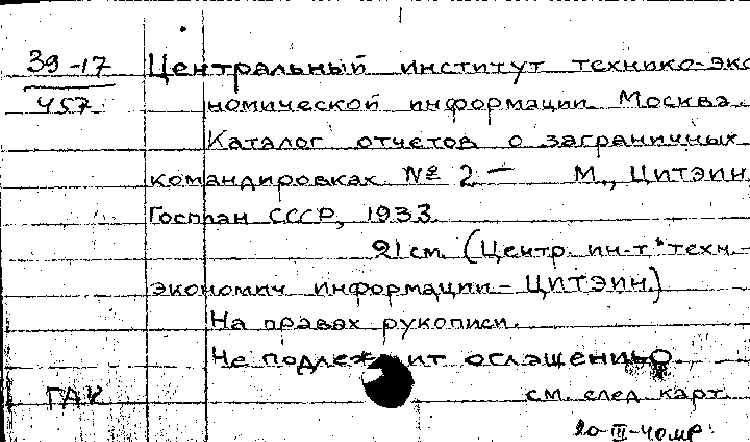 39-17
457
Центральный институт технико-эко
номической информации. Москва.
Каталог отчетов о заграничных
командировках № 2 — М., ЦИТЭИН
Госплан СССР, 1933.
21 см. (Центр. ин-т техн.-
экономич информации - ЦИТЭИН.)
На правах рукописи.
Не подлежит оглашению.
ГАК см. след. карт.
20-III-40